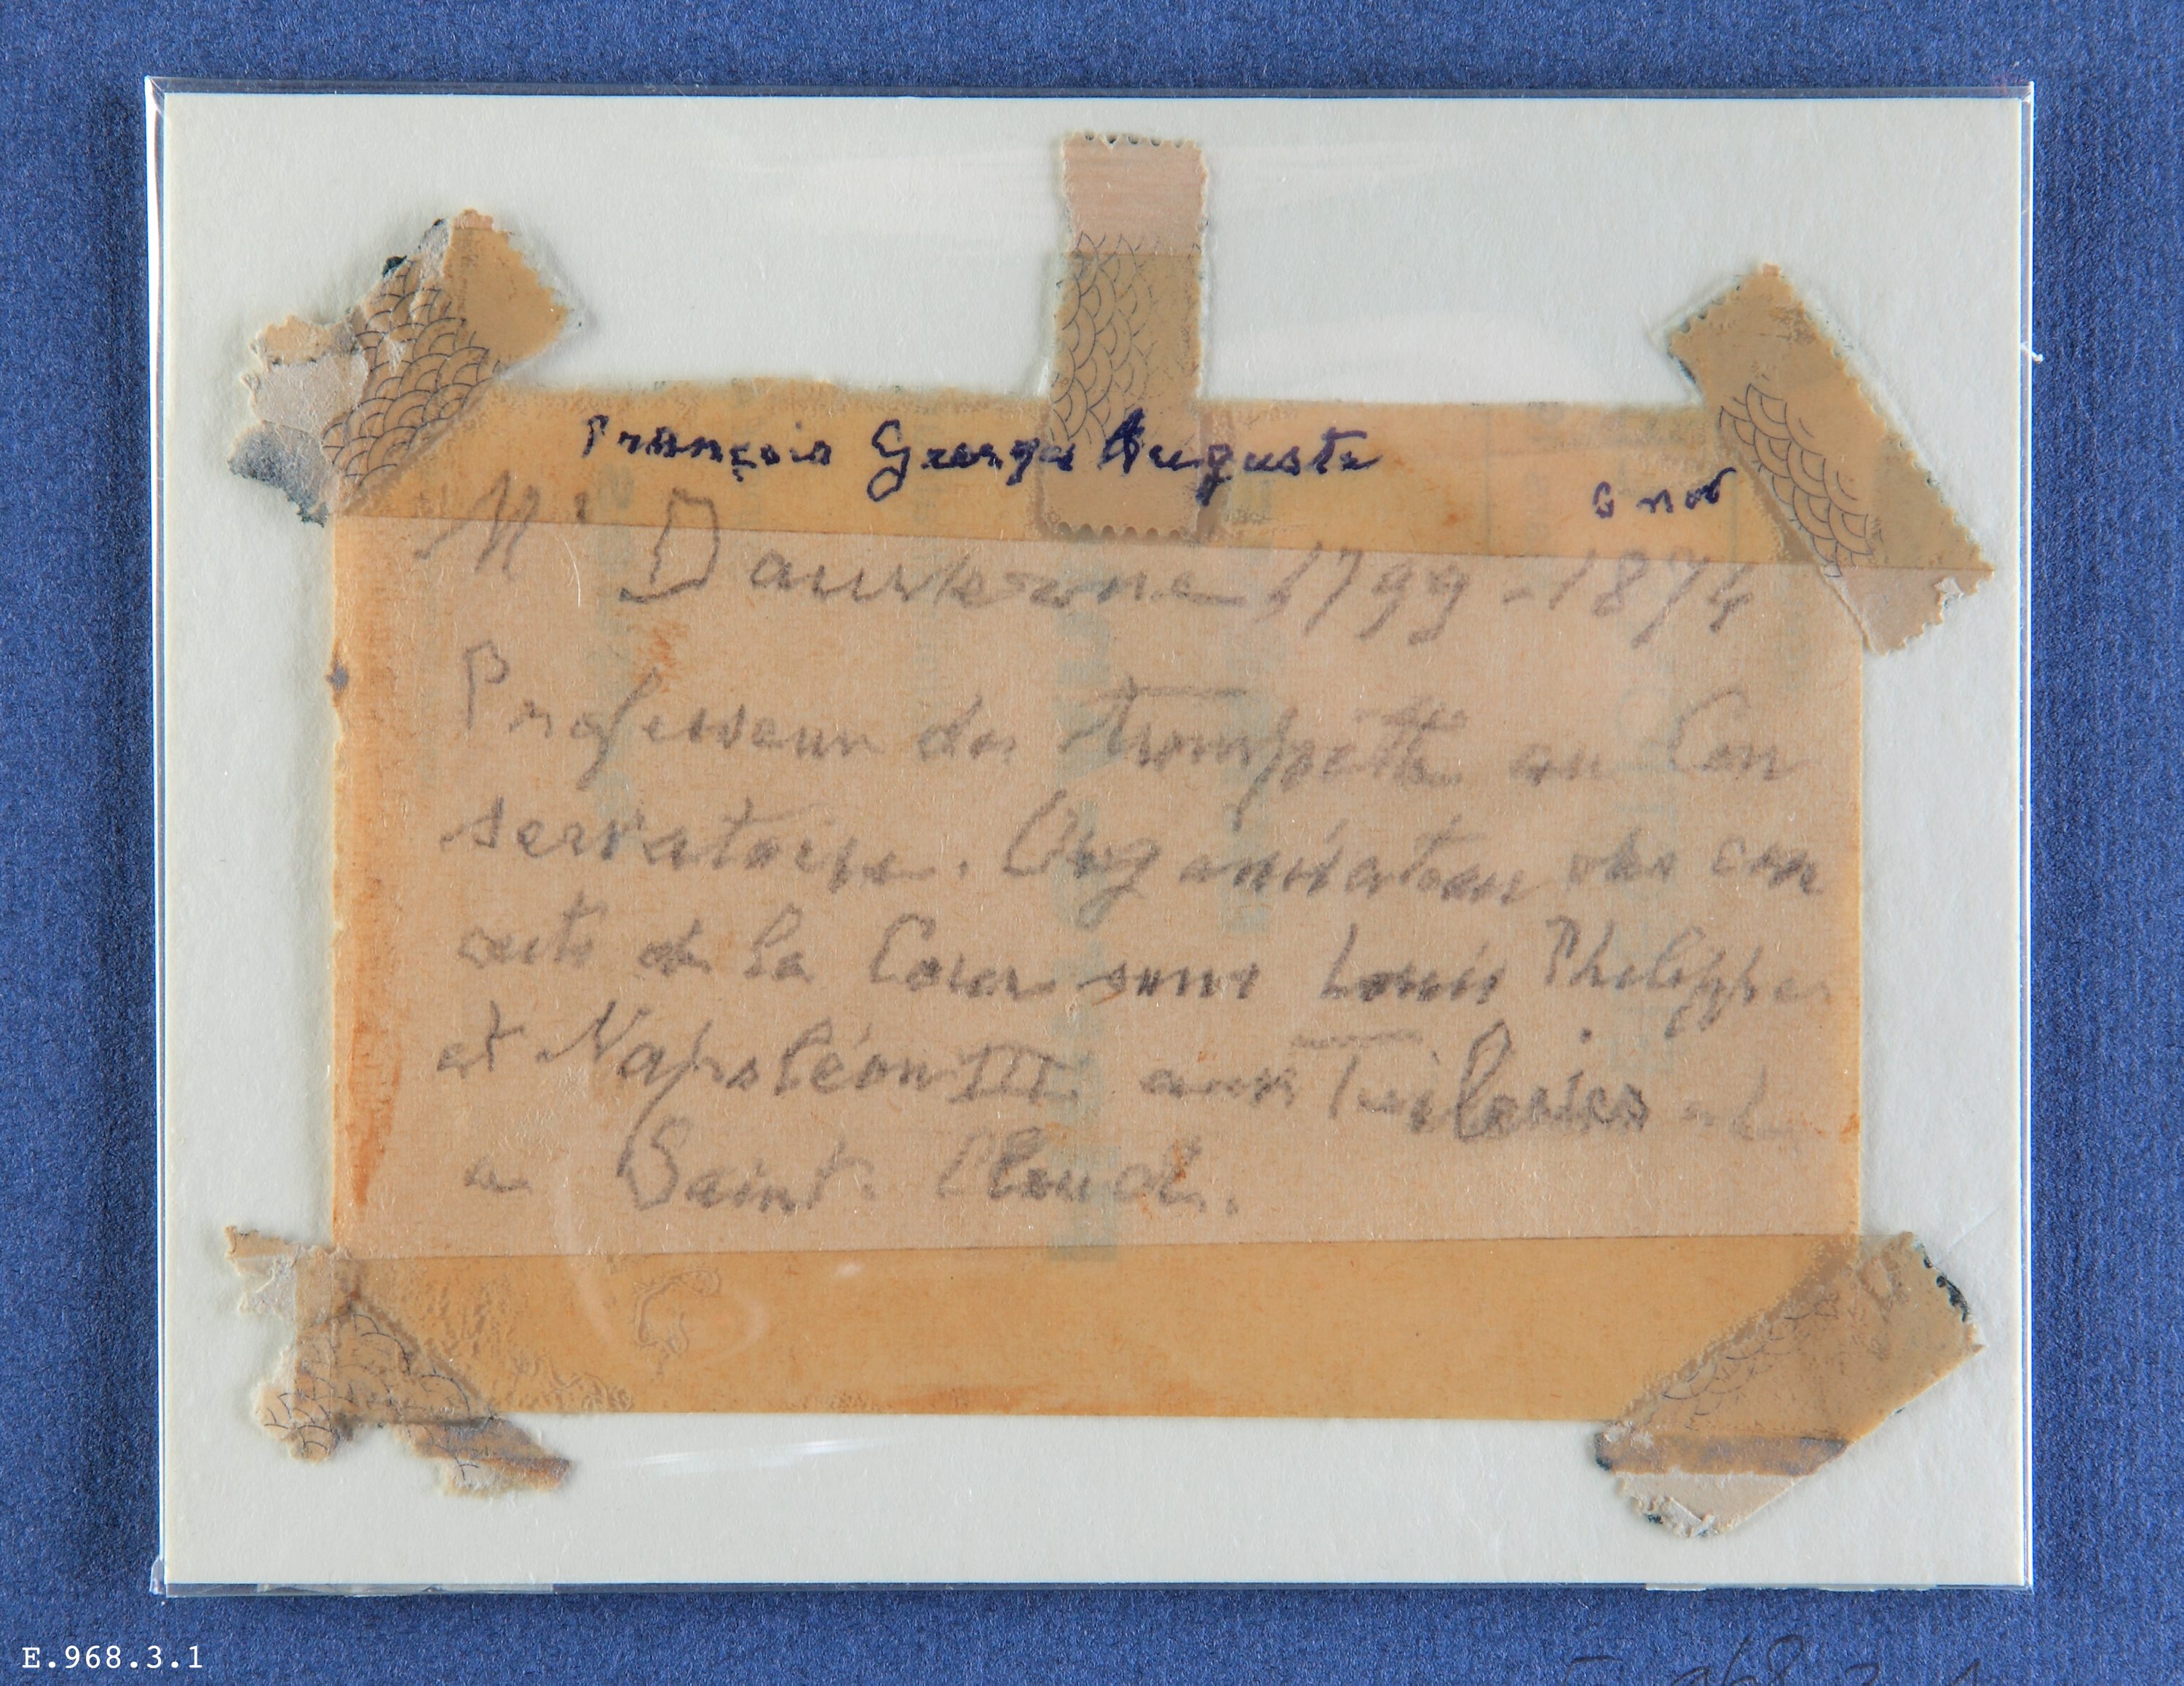 François Georges Auguste
6 nov
Mr Dauverné 1799-1874
Professeur de trompette au Con
servatoire. Organisateur des con
certs de la Cour sous Louis Philippe
et Napoléon III aux Tuileries et
a Saint-Cloud.
E.968.3.1
E.968.3.1